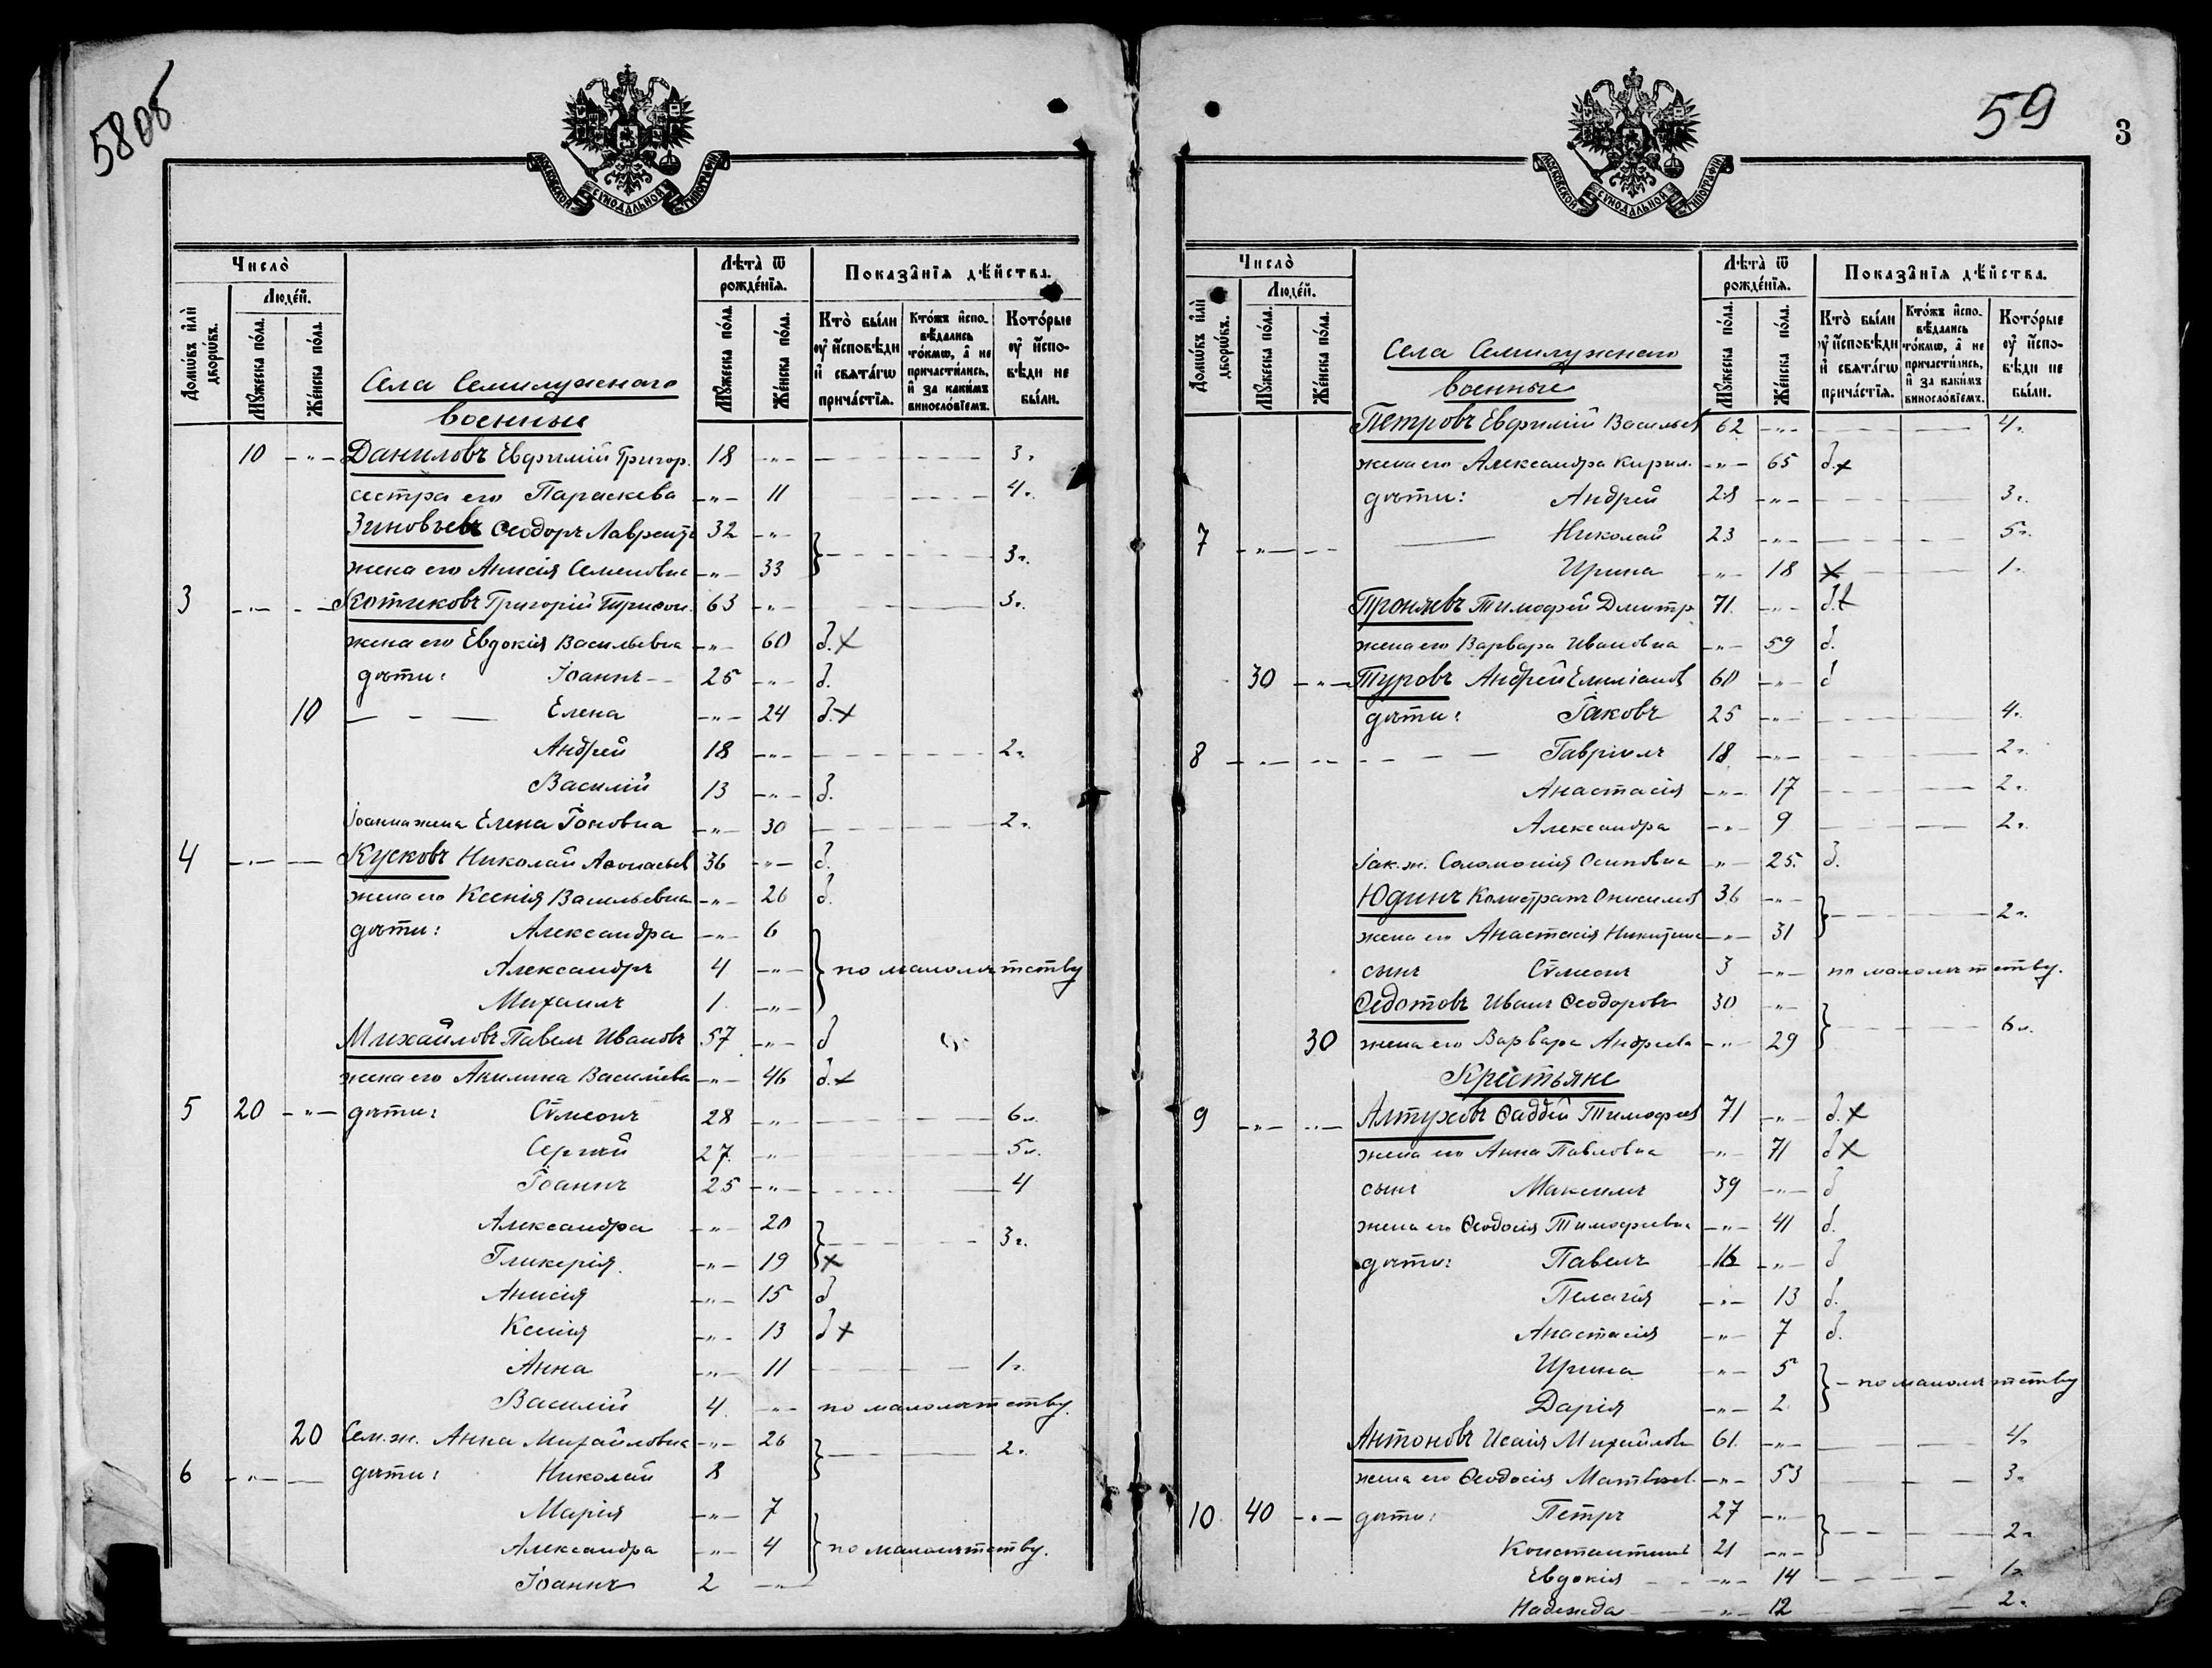 58об
МОСКОВСКОЙ СѴНОДАЛЬНОЙ ТИПОГРАФІИ
Число̀
Людéй.
Домѡ́въ и҆лѝ дворѡ́въ.
Мꙋ́жеска по́ла.
Же́нска по́ла.
Лѣ́та ѿ рожде́нїѧ.
Мꙋ́жеска по́ла.
Же́нска по́ла.
Показа̑нїѧ дѣ́йства.
Кто̀ бы́ли оу҆ и҆́сповѣди и҆ свѧта́гѡ прича́стїѧ.
Кто́жъ и҆спо-вѣ́дались то́кмѡ, а҆ не причасти́лись, и҆ за каки́мъ винослѡ́вїемъ.
Кото́рые оу҆ и҆́спо-вѣди не бы́ли.
Села Семилужнаго
военные
10 -"- Даниловъ Евфимій Григор. 18 -"- 3 г.
сестра его Параскева -"- 11 4 г.
Зиновьевъ Ѳеодоръ Лаврент. 32 -"-
жена его Анисія Семеновна -"- 33 3 г.
3 -"- Котиковъ Григорій Трифон. 63 -"- 3 г.
жена его Евдокія Васильевна -"- 60 б. х
дѣти: Іоаннъ 25 -"- б.
10 Елена -"- 24 б. х
Андрей 18 -"- 2 г.
Василій 13 -"- б.
Іоанна жена Елена Іоновна -"- 30 2 г.
4 -"- Кусковъ Николай Аѳонасьев 36 -"- б.
жена его Ксенія Васильевна -"- 26 б.
дѣти: Александра -"- 6
Александръ 4 -"- } по малолѣтству
Михаилъ 1 -"-
Михайловъ Павелъ Ивановъ 57 -"- б
жена его Акилина Василіева -"- 46 б. х
5 20 -"- дѣти: Сѵмеонъ 28 -"- 6 г.
Сергій 27 -"- 5 г.
Іоаннъ 25 -"- 4
Александра -"- 20 3 г.
Гликерія -"- 19 х
Анисія -"- 15 б
Ксенія -"- 13 б х
Анна -"- 11 1 г.
Василій 4 -"- по малолѣтству.
20 Сем. ж. Анна Михайловна -"- 26 2 г.
6 -"- дѣти: Николай 8
Марія -"- 7
Александра -"- 4 } по малолѣтству.
Іоаннъ 2 -"-
59
3
МОСКОВСКОЙ СѴНОДАЛЬНОЙ ТИПОГРАФІИ
Число̀
Людéй.
Домѡ́въ и҆лѝ дворѡ́въ.
Мꙋ́жеска по́ла.
Же́нска по́ла.
Лѣ́та ѿ рожде́нїѧ.
Мꙋ́жеска по́ла.
Же́нска по́ла.
Показа̑нїѧ дѣ́йства.
Кто̀ бы́ли оу҆ и҆́сповѣди и҆ свѧта́гѡ прича́стїѧ.
Кто́жъ и҆спо-вѣ́дались то́кмѡ, а҆ не причасти́лись, и҆ за каки́мъ винослѡ́вїемъ.
Кото́рые оу҆ и҆́спо-вѣди не бы́ли.
Села Семилужнаго
военные
Петровъ Евфимій Васильев 62 -"- 4 г.
жена его Александра Кирил. -"- 65 б. х
дѣти: Андрей 28 -"- 3 г.
7 -"- Николай 23 -"- 5 г.
Ирина -"- 18 х 1 г.
Пронявъ Тимофей Дмитр. 71 -"- б. х
жена его Варвара Ивановна -"- 59 б.
30 -"- Туровъ Андрей Емиліанов 60 -"- б
дѣти: Іаковъ 25 -"- 4 г.
8 -"- Гавріилъ 18 -"- 2 г.
Анастасія -"- 17 2 г.
Александра -"- 9 2 г.
Іак. ж. Соломонія Осиповна -"- 25 б.
Юдинъ Калистратъ Онисимов 36 -"-
жена его Анастасія Никитина -"- 31 2 г.
сынъ Сѵмеонъ 3 -"- по малолѣтству.
Ѳедотовъ Иванъ Ѳеодоровъ 30 -"-
30 жена его Варвара Андреева -"- 29 6 г.
Крестьяне
9 -"- Алтуховъ Ѳаддей Тимофеев 71 -"- б. х
жена его Анна Павловна -"- 71 б х
сынъ Максимъ 39 -"- б
жена его Ѳеодосія Тимофеевна -"- 41 б.
дѣти: Павелъ 16 -"- б
Пелагія -"- 13 б.
Анастасія -"- 7 б.
Ирина -"- 5
Дарія -"- 2 } по малолѣтству
Антоновъ Исаія Михайлов 61 -"- 4 г.
жена его Ѳеодосія Матвеев. -"- 53 3 г.
10 40 -"- дѣти: Петръ 27 -"-
Константинъ 21 -"- 2 г.
Евдокія -"- 14 1 г.
Надежда -"- 12 2 г.